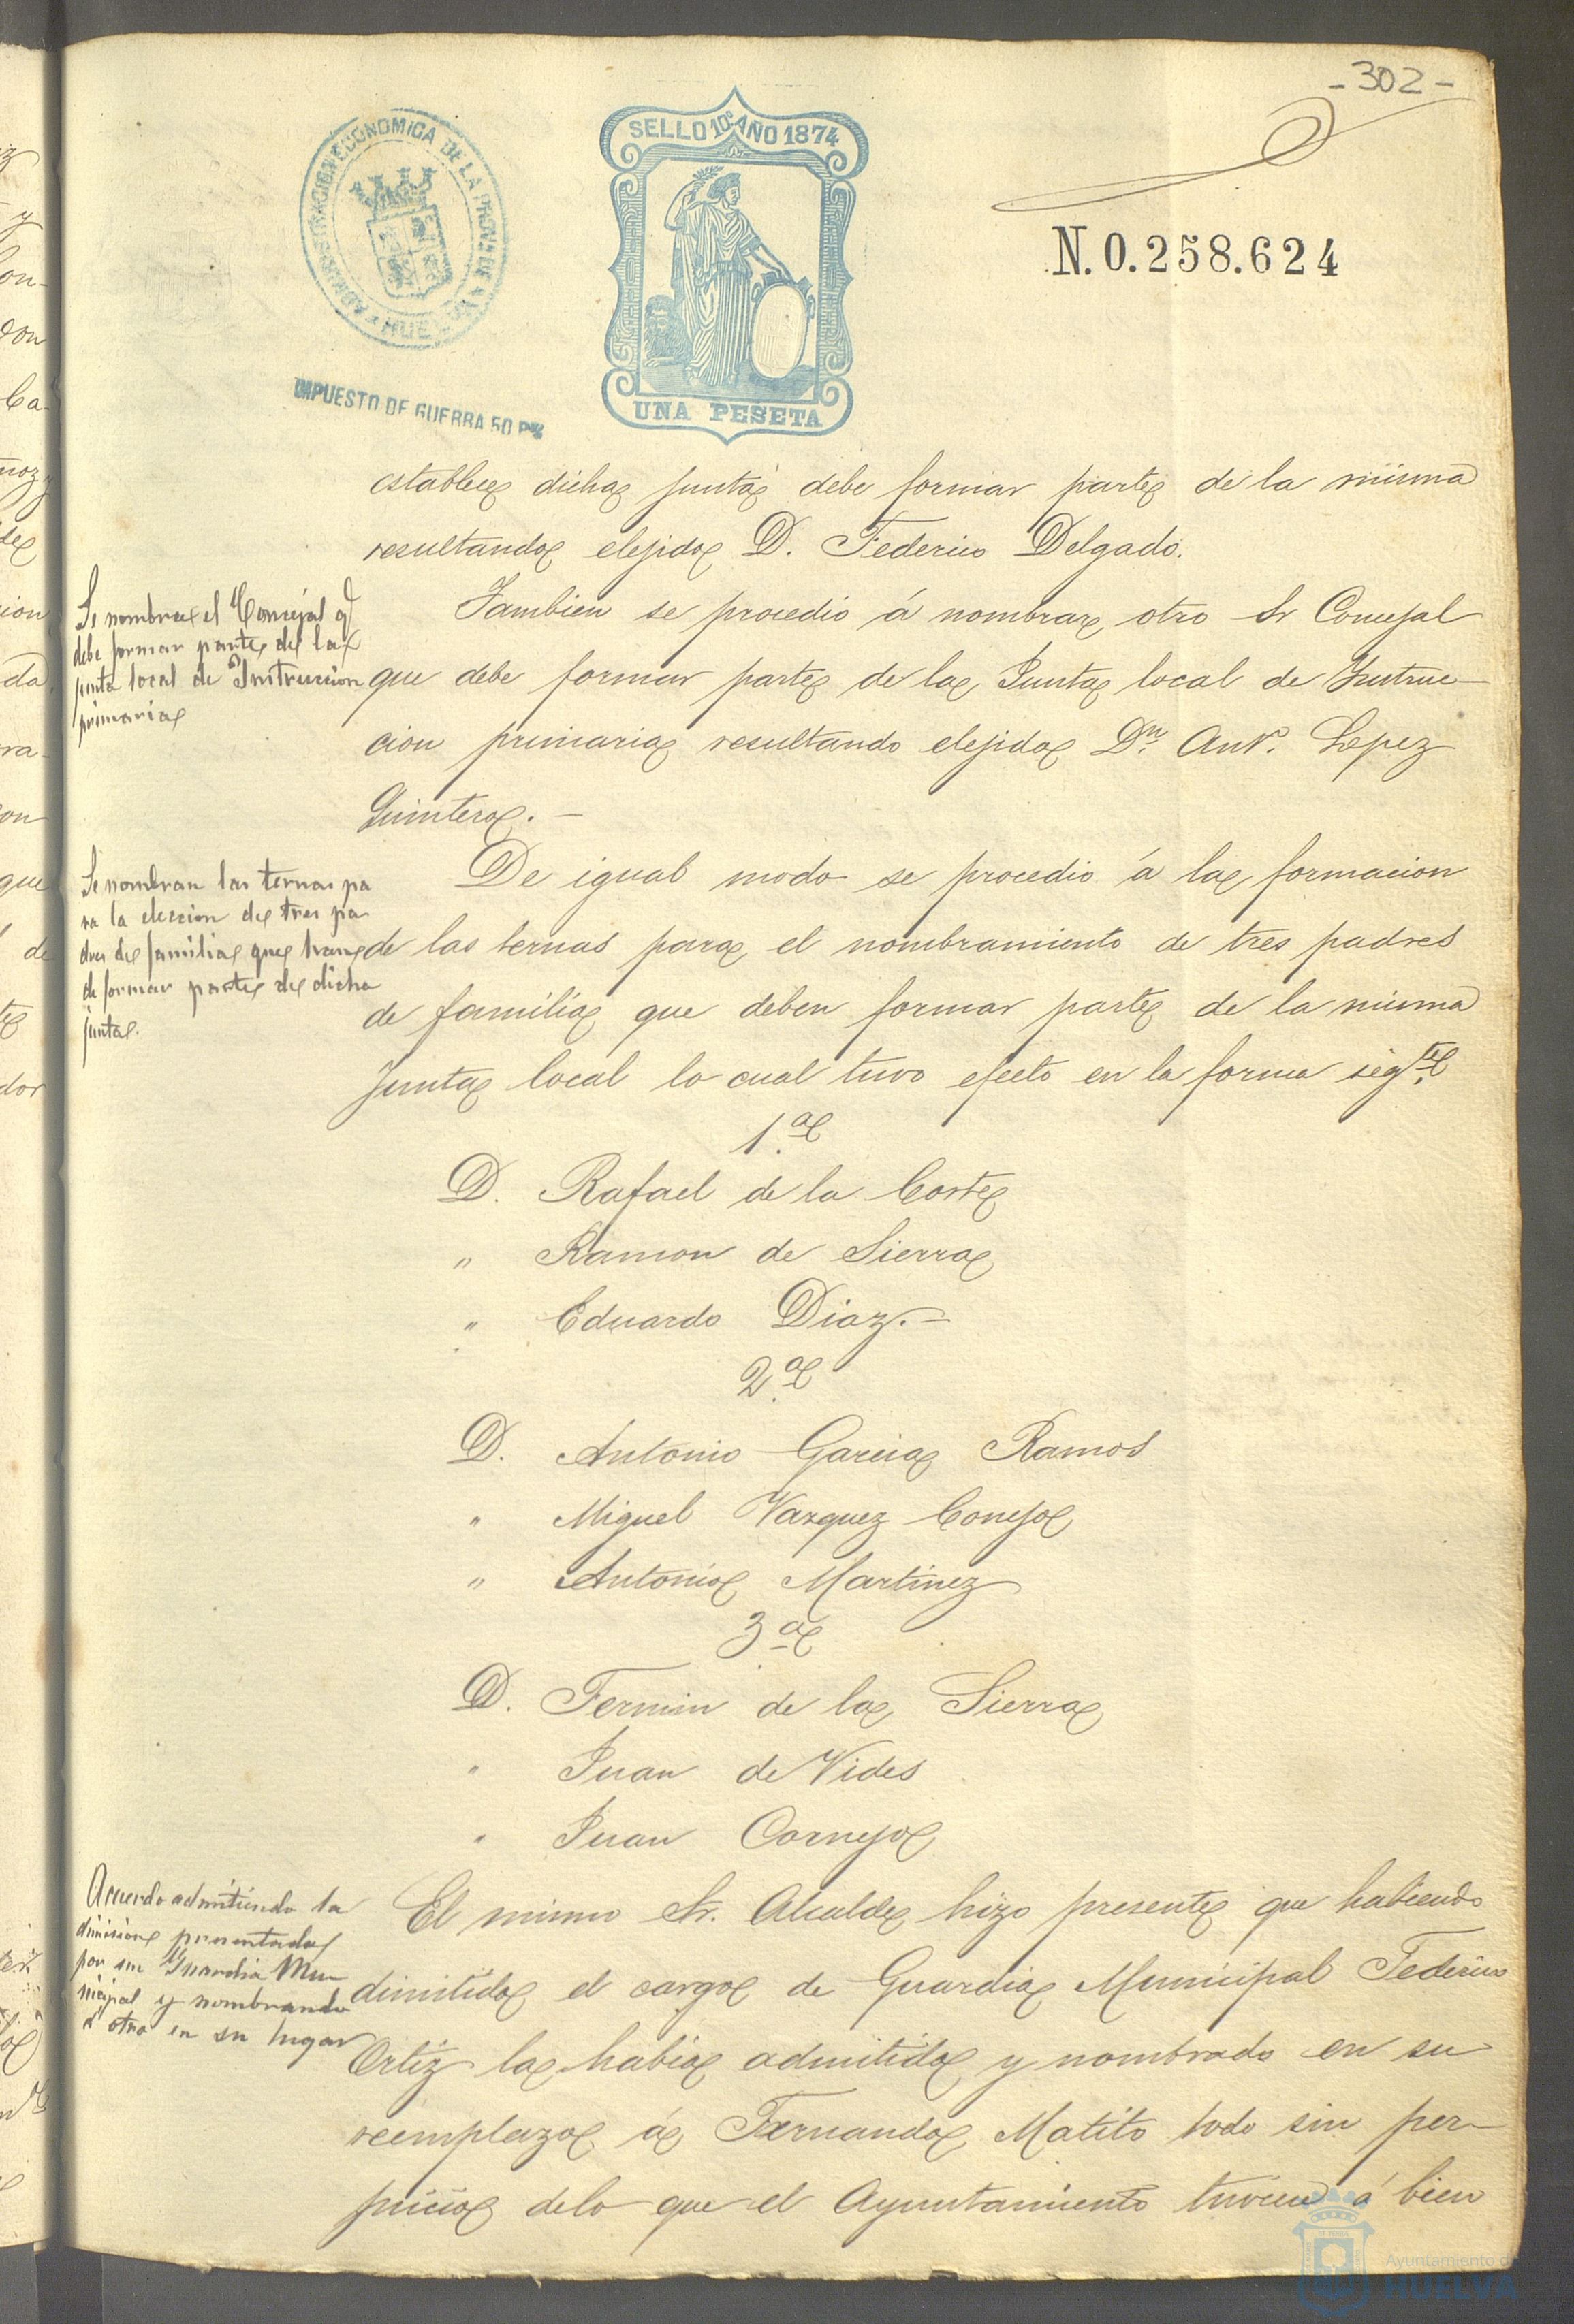 - 302 -
ADMINISTRACION ECONOMICA DE LA PROVª DE
HUELVA
SELLO 10º AÑO 1874
UNA PESETA
N. 0.258.624
IMPUESTO DE GUERRA 50 P%
establece dicha junta debe formar parte de la misma
resultando elejido D. Federico Delgado.
Se nombra el Concejal q
debe formar parte de la
junta local de Instruccion
primaria
Tambien se procedio á nombrar otro Sr Concejal
que debe formar parte de la Junta local de Instruc-
cion primaria resultando elejido Dn. Antº. Lopez
Quintero. -
Se nombran las ternas pa
ra la eleccion de tres pa
dres de familia que han
de formar parte de dicha
junta.
De igual modo se procedio á la formacion
de las ternas para el nombramiento de tres padres
de familia que deben formar parte de la misma
Junta local lo cual tuvo efecto en la forma sigte.
1.ª
D. Rafael de la Corte
" Ramon de Sierra
" Eduardo Diaz. -
2.ª
D. Antonio Garcia Ramos
" Miguel Vazquez Conejo
" Antonio Martinez
3ª
D. Fermin de la Sierra
" Juan de Vides
" Juan Cornejo
Acuerdo admitiendo la
dimision presentada
por un Guardia Mu
nicipal y nombrando
á otro en su lugar
El mismo Sr. Alcalde hizo presente que habiendo
dimitido el cargo de Guardia Municipal Federico
Ortiz la habia admitido y nombrado en su
reemplazo á Fernando Matito todo sin per-
juicio de lo que el Ayuntamiento tuviere á bien
Ayuntamiento de
HUELVA